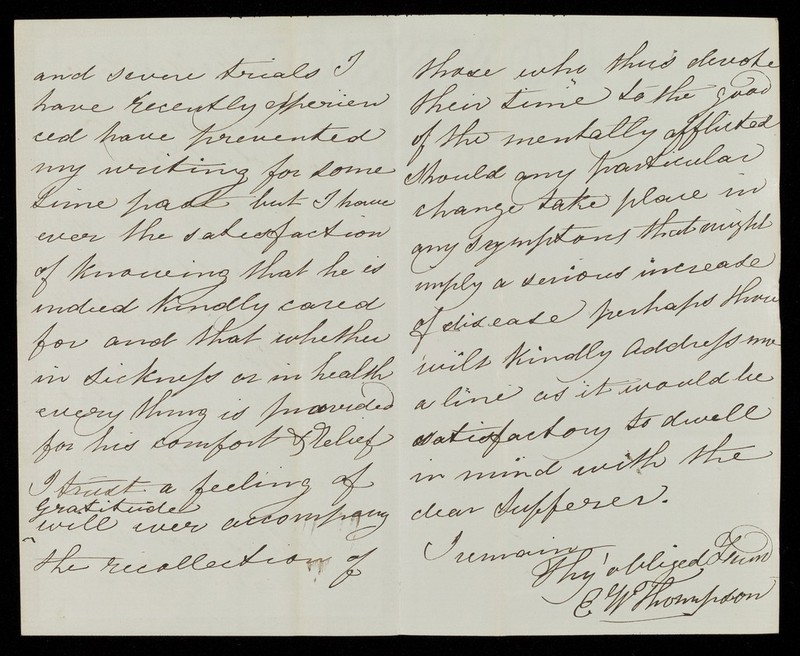 and severe trials I
have recently experien
ced have prevented
my writing for some
time past but I have
ever the satisfaction
of knowing that he is
indeed kindly cared
for and that whether
in sickness or in health
every thing is provided
for his comfort & relief
I trust a feeling of
gratitude
will ever accompany
the recollection of
those who thus devote
their time to the good
of the mentally afflicted
Should any particular
change take place in
any symptoms that might
imply a serious increase
of disease perhaps thou
wilt kindly address me
a line as it would be
satisfactory to dwell
in mind with the
dear Sufferer.
I remain
Thy obliged Friend
E W Thompson